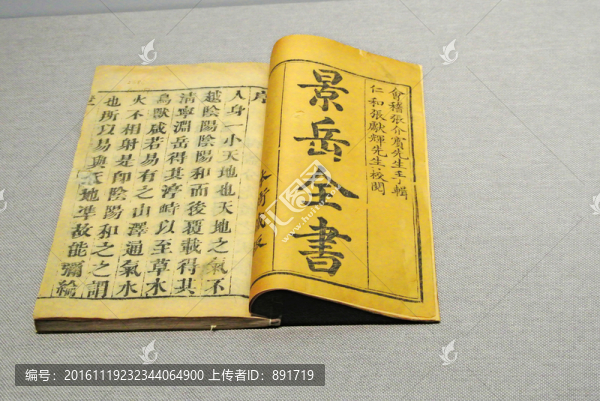 會稽張介賓先生手輯
仁和張獻輝先生校閱
景岳全書
序
人身一小天地也天地之氣不
越陰陽陰陽和而後覆載得其
清寧淵岳得其渟峙以至草木
鳥獸咸若易有之山澤通氣水
火不相射是卽陰陽和之之謂
也所以易與天地準故能彌綸
汇图网
编号：20161119232344064900 上传者ID：891719